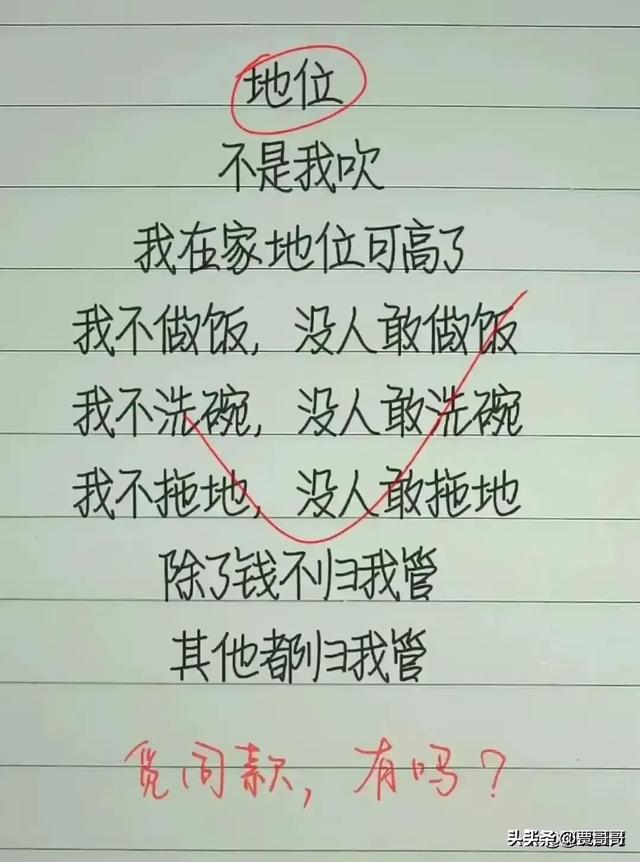 地位
不是我吹
我在家地位可高了
我不做饭，没人敢做饭
我不洗碗，没人敢洗碗
我不拖地，没人敢拖地
除了钱不归我管
其他都归我管
觅同款，有吗？
头头条@贾哥哥